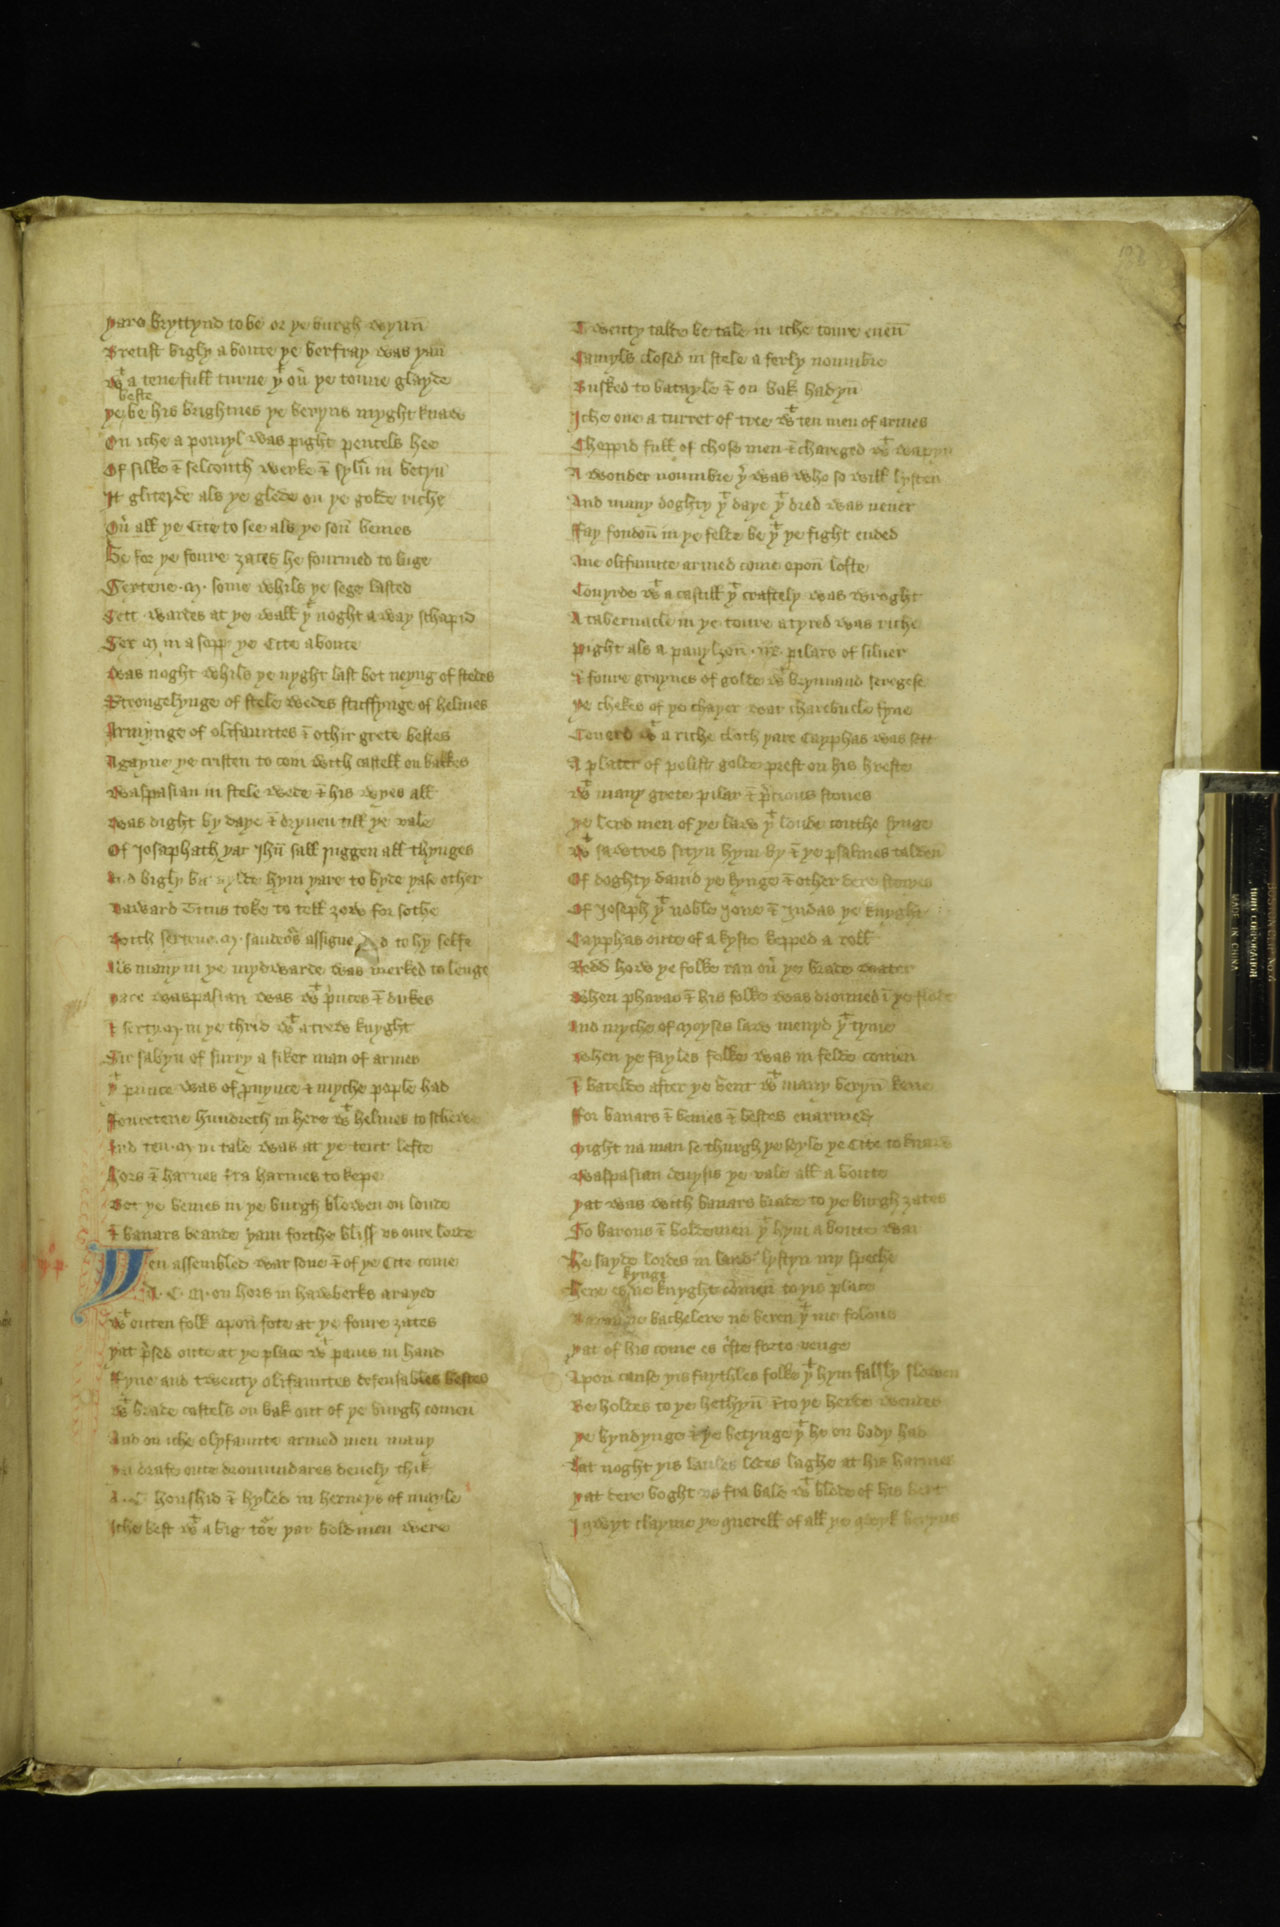 yare bryttynd to be or ye burgh wyun̄
Bretist bigly a boute ye berfray was yan̄
wt a tenefull turne yt ou̓ ye toure glayde
beste
ye be his brightnes ye beryns myght knawe
On iche a pomyl was pight pencels hee
Of silke & selcouth werke & sylu̓ in betyn̄
It gliterde als ye glede on ye golde riche
Ou̓ all ye Cite to see als ye son̄ bemes
Be for ye foure zates he fourmed to lige
Sextene .M. some whils ye sege lasted
Sett wardes at ye wall yt noght a way schapid
Sex M in a sopp ye Cite aboute
was noght whils ye nyght last bot neyng of stedes
Strongelynge of stele wedes stuffynge of helmes
Armynge of olifauntes & othir grete bestes
Agayne ye cristen to com with castell on bakkes
waspasian in stele wede & his wyes all
was dight by daye & dryuen till ye vale
Of Josaphath yar Jhu̅ sall juggen all thynges
And bigly hym yare to byde yase other
vaward Titus toke to tell zow for sothe
with sextene .M. saudeo's assigned to hy selfe
Als many in ye mydwarde was merked to lenge
yare waspasian was wt p̓nces & dukes
& sexty M in ye thrid wt a trew knyght
Sir sabyn of surry a siker man of armes
yt prince was of p̱uynce & myche pople had
Fouretene hundreth in here wt helmes to schewe
And ten .M in tale was at ye tent lefte
hors & harnes fra harmes to kepe
Bot ye bemes in ye burgh blowen on loude
& banars beande yam forthe bliss us oure lorde
Den assembled war sone & of ye Cite come
A .C. M. on hors in hawberks arayed
wt outen folk apon fote at ye foure zates
yat p̓sed oute at ye place wt paues in hand
Fyue and twenty olifauntes defensables bestes
wt brade castels on bak out of ye burgh comen
And on iche olyfaunte armed men many
drafe oute dromundares deuely thik
A .C houshid & hyled in herneys of mayle
Iche best wt a big to̓re yat bold men were
Twenty talde be tale in iche toure euen̄
Camyls closed in stele a ferly noumbre
Busked to batayle & on bak hadyn̄
Iche one a turret of tree wt ten men of armes
Cheppid full of chose men & chareged wt wapyn
A wonder noumbre y̓ was who so will lysten
And many doghty yt daye yt dred was neuer
Fay fondon̄ in ye felde be yt ye fight ended
Ane olifaunte armed come opon lofte
Couyrde wt a castill yt craftely was wroght
A tabernacle in ye toure atyred was riche
pight als a pauylyon̄ on pilars of siluer
& foure graynes of golde wt brynnand seregese
ye chekes of ye chayer war charebucle fyne
Couerd wt a riche cloth yare Cayphas was sett
A plater of polist golde prest on his breste
wt many grete pilar & p̓cious stones
ye lerd men of ye law yt loude couthe synge
wt sawtres sityn hym by & ye psalmes talden
Of doghty dauid ye kynge & other dere stories
Of Joseph yt noble Jone & Judas ye knyght
Cayphas oute of a kyste kepped a roll
Redd how ye folke ran ou̓ ye brade water
when pharao & his folke was drouned i̅ ye flode
And myche of Moyses law menyd yt tyme
when ye fayles folke was in felde comen
& batelde after ye bent wt many beryn̄ kene
for banars & bemes & bestes enarmed
Might na man se thurgh ye soyle ye Cite to knawe
waspasian deuysis ye vale all a boute
yat was with banars brade to ye burgh zates
To barons & boldemen yt hym aboute war
he sayde lordes in land lystyn my speche
kynge
here es ne knyght comen to yis place
ne bachelere ne beren yt me folous
yat of his come es c̓ste forto venge
Apon cause yis faythles folke yt hym falsly slowen
Be holdes to ye hethyn̄ & to ye herde wendes
ye byndynge & ye betynge yt he on body had
Lat noght yis laules ledes laghe at his harmes
yat dere boght us fra bale wt blode of his hert
I qwyt clayme ye querell of all ye qwyk beryns